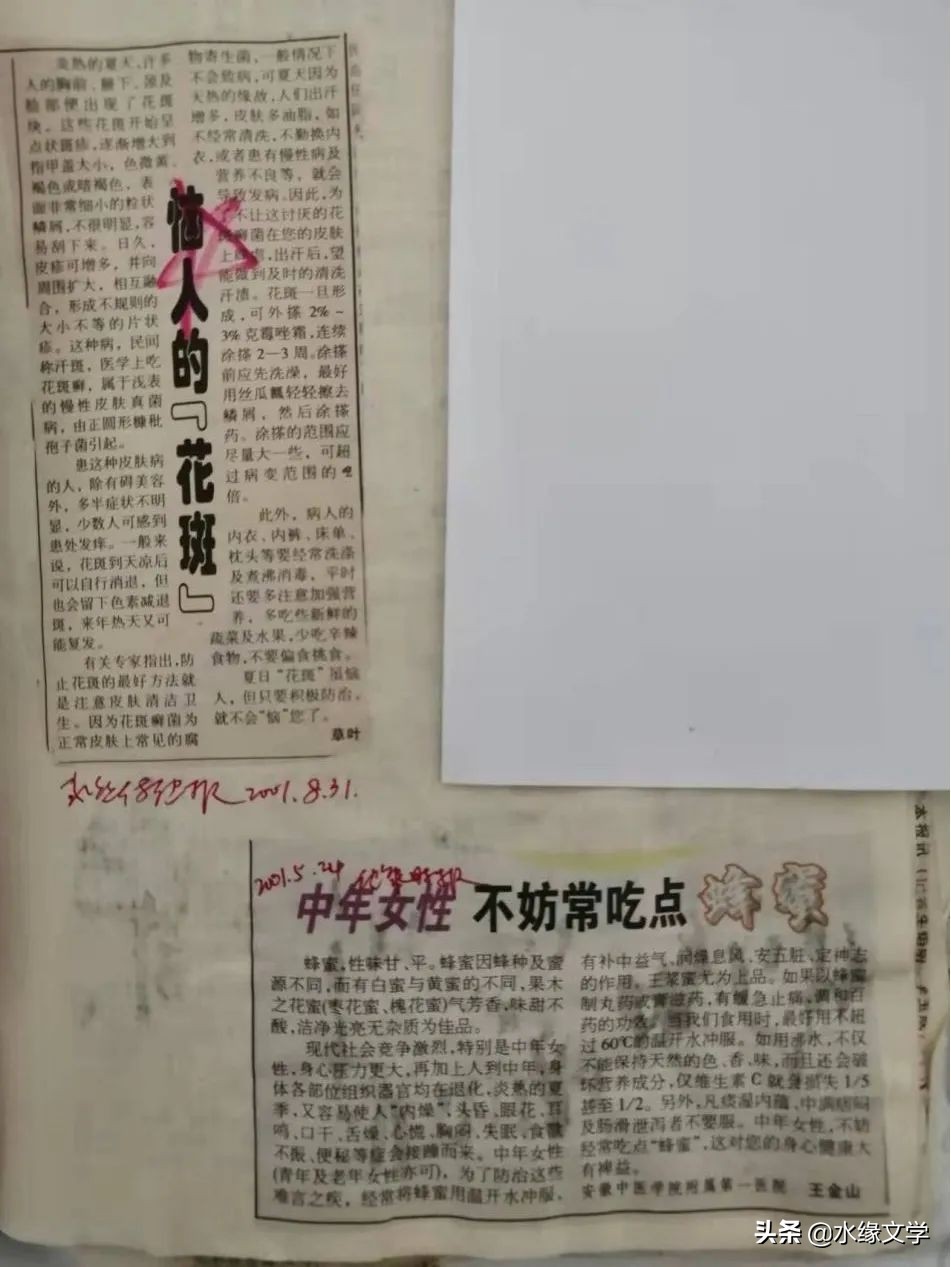 恼人的『花斑』
炎热的夏天，许多
人的胸前、腋下、颈及
脸部便出现了花斑
块。这些花斑开始呈
点状斑疹，逐渐增大到
指甲盖大小，色微黄、
褐色或暗褐色，表
面非常细小的粒状
鳞屑，不很明显，容
易刮下来。日久，
皮疹可增多，并向
周围扩大，相互融
合，形成不规则的
大小不等的片状
疹。这种病，民间
称汗斑，医学上吃
花斑癣，属于浅表
的慢性皮肤真菌
病，由正圆形糠秕
孢子菌引起。
患这种皮肤病
的人，除有碍美容
外，多半症状不明
显，少数人可感到
患处发痒。一般来
说，花斑到天凉后
可以自行消退，但
也会留下色素减退
斑，来年热天又可
能复发。
有关专家指出，防
止花斑的最好方法就
是注意皮肤清洁卫
生。因为花斑癣菌为
正常皮肤上常见的腐
物寄生菌，一般情况下
不会致病，可夏天因为
天热的缘故，人们出汗
增多，皮肤多油脂，如
不经常清洗，不勤换内
衣，或者患有慢性病及
营养不良等，就会
导致发病。因此，为
了不让这讨厌的花
斑癣菌在您的皮肤
上，出汗后，望
能做到及时的清洗
汗渍。花斑一旦形
成，可外搽2%~
3%克霉唑霜，连续
涂搽2—3周。涂搽
前应先洗澡，最好
用丝瓜瓤轻轻擦去
鳞屑，然后涂搽
药。涂搽的范围应
尽量大一些，可超
过病变范围的2
倍。
此外，病人的
内衣、内裤、床单、
枕头等要经常洗涤
及煮沸消毒，平时
还要多注意加强营
养，多吃些新鲜的
蔬菜及水果，少吃辛辣
食物，不要偏食挑食。
夏日“花斑”虽恼
人，但只要积极防治，
就不会“恼”您了。
草叶
报 2001.8.31.
2001.5.24 报
中年女性 不妨常吃点 蜂蜜
蜂蜜，性味甘、平。蜂蜜因蜂种及蜜
源不同，而有白蜜与黄蜜的不同，果木
之花蜜(枣花蜜、槐花蜜)气芳香，味甜不
酸，洁净光亮无杂质为佳品。
现代社会竞争激烈，特别是中年女
性，身心压力更大，再加上人到中年，身
体各部位组织器官均在退化，炎热的夏
季，又容易使人“内燥”，头昏、眼花、耳
鸣、口干、舌燥、心慌、胸闷、失眠、食欲
不振、便秘等症会接踵而来。中年女性
(青年及老年女性亦可)，为了防治这些
难言之疾，经常将蜂蜜用温开水冲服，
有补中益气，润燥息风，安五脏，定神志
的作用。王浆蜜尤为上品。如果以蜂蜜
制丸药或膏滋药，有缓急止痛，调和百
药的功效。当我们食用时，最好用不超
过60℃的温开水冲服。如用沸水，不仅
不能保持天然的色、香、味，而且还会破
坏营养成分，仅维生素C就会损失1/5
甚至1/2。另外，凡痰湿内蕴、中满痞闷
及肠滑泄泻者不要服。中年女性，不妨
经常吃点“蜂蜜”，这对您的身心健康大
有裨益。
安徽中医学院附属第一医院 王金山
头条 @水缘文学